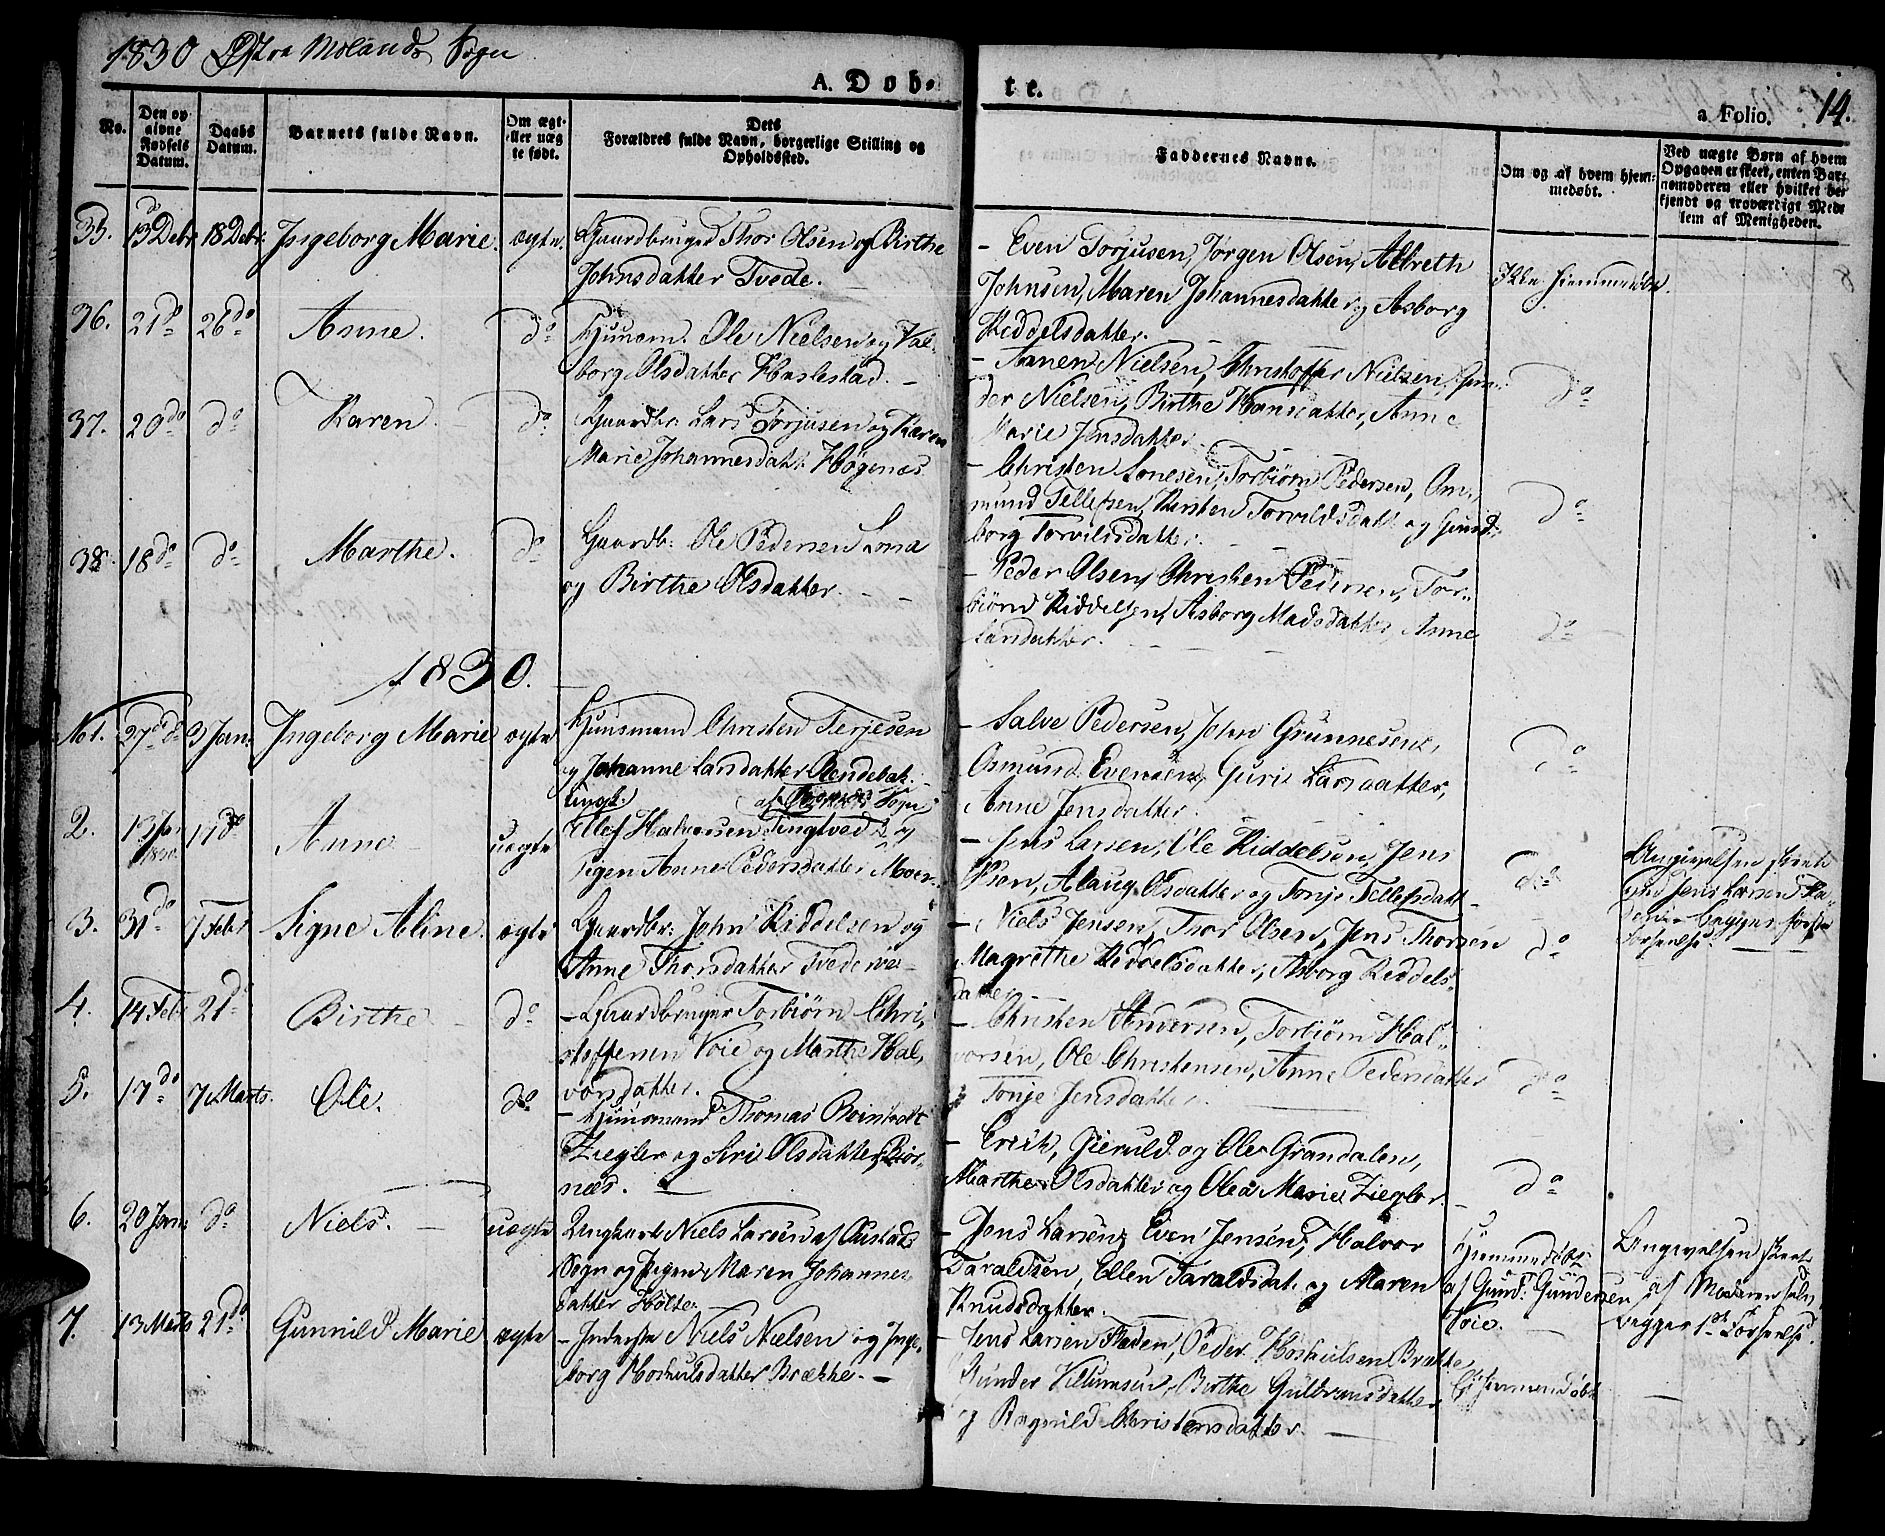 1830 Østre Molands Sogn
A. Døb-
te.
a Folio. 14.
No.
Den op
givne
Fødsels
Datum.
Daabs
Datum.
Barnets fulde Navn.
Om ægt-
eller uæg
te født.
Dets
Forældres fulde Navn, borgerlige Stilling og
Opholdssted.
Faddernes Navne.
Om og af hvem hjem-
medøbt.
Ved uægte Børn af hvem
Opgaven er skeet, enten Bar-
nemoderen eller hvilket be-
kjendt og troværdigt Med-
lem af Menigheden.
35. 13 Decbr 18 Decbr Ingeborg Marie. ægte. Gaardbruger Thor Olsen og Birthe
Johnsdatter Tvede.
- Even Torjusen, Jørgen Olsen, Albreth
Johnsen, Maren Johannesdatter og Asborg
Keddelsdatter.
Ikke hjemmedøbt.
36. 21 do 26 do Anne. do Huusm. Ole Nielsen og Val-
borg Olsdatter Haslestad.
- Aanen Nielsen, Christoffer Nielsen,
der Nielsen, Birthe Hansdatter, Anne
Marie Jensdatter.
do
37. 20 do do Karen. do Gaardbr: Lars Torjusen og Karen
Marie Johannesdatt. Høgenæs
- Christen Lonesen, Torbiørn Pedersen, Om-
mund Tellefsen, Kirsten Torvildsdatt og Gund-
borg Torvildsdatter.
do
38. 18 do do Marthe. do Gaardb: Ole Pedersen Lona
og Birthe Olsdatter.
- Peder Olsen, Christen Pedersen, Tor-
biørn Kiddelsen, Asborg Madsdatter, Anne
Larsdatter.
do
1830.
No 1. 27 do 3 Jan: Ingeborg Marie ægte Huusmand Christen Terjesen
og Johanne Larsdatter Rendebak.
- Salve Pedersen, John Grunnesen,
Osmund Evensen, Guri Larsdatter,
Anne Jensdatter.
do
2. 13 Jan 1830 17 do Anne uægte
Ungk. Ellef Halvorsen Tingtved af Sogn og
Pigen Anne Pedersdatter Moer.
- Jens Larsen, Ole Kiddelsen, Jens
Olsen, Alaug Olsdatter og Tonje Tellefsdatt
do
Angivelsen skeet
ved Jens Larsen
Begges første
Forseelse
3. 31 do 7 Febr Signe Aline. ægte Gaardbr: John Kiddelsen og
Anne Thorsdatter Tvede
- Niels Jensen, Thor Olsen, Jens Thorsen
Magrethe Keddelsdatter, Asborg Keddels-
datter
do
4. 14 Febr 21 do Birthe do - Gaardbruger Torbiørn Chri-
stoffersen Voie og Marthe Hal-
vorsdatter.
- Christen Andersen, Torbiørn Hal-
vorsen, Ole Christensen, Anne Pedersdatter
og Tonje Jensdatter.
do
5. 17 do 7 Marts. Ole. do - Huusmand Thomas Reinhodt
Ziegler og Siri Olsdatter, Biør-
næs.
- Erich, Gieruld og Ole Grandalen,
Marthe Olsdatter og Olea Marie Ziegler.
do
6. 20 Jan: do Niels. uægte Ungkarl Niels Larsen af Øiestads
Sogn og Pigen Maren Johannes
datter Holte.
- Jens Larsen, Even Jensen, Halvor
Taraldsen, Ellen Taraldsdat. og Maren
Knudsdatter.
Hjemmedøbt
af Gund: Gundersen
Voie.
Angivelsen skeet
af Moderen selv,
begges 1st Forseelse.
7. 13 Marts 21 do Gunnild Marie ægte - Inderste Niels Nielsen og Inge-
borg Hoskuldsdatter Brække.
- Jens Larsen Fladen, Peder Hoskulsen Brække
Gunder Villumsen, Birthe Guldvensdatter
og Ragnild Christensdatter.
Ei hjemmedøbt